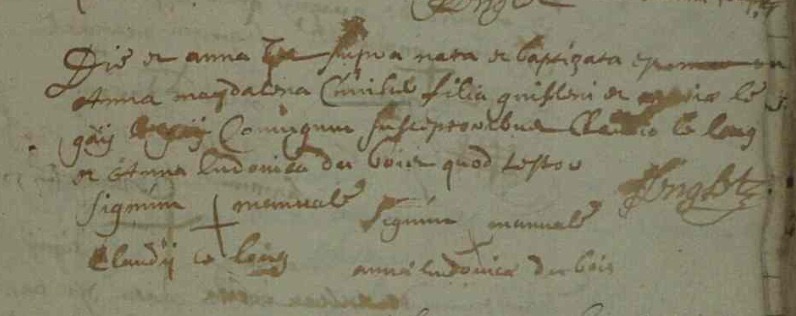 Die et anno ut supra nata et baptizata est
Anna magdalena Cuuilie filia guisleni et mariæ le
gay Coniugum susceptoribus Claudio le long
et Anna ludovica du bois quod testor
signum manuale signum manuale
Claudij le long anna ludovica du bois